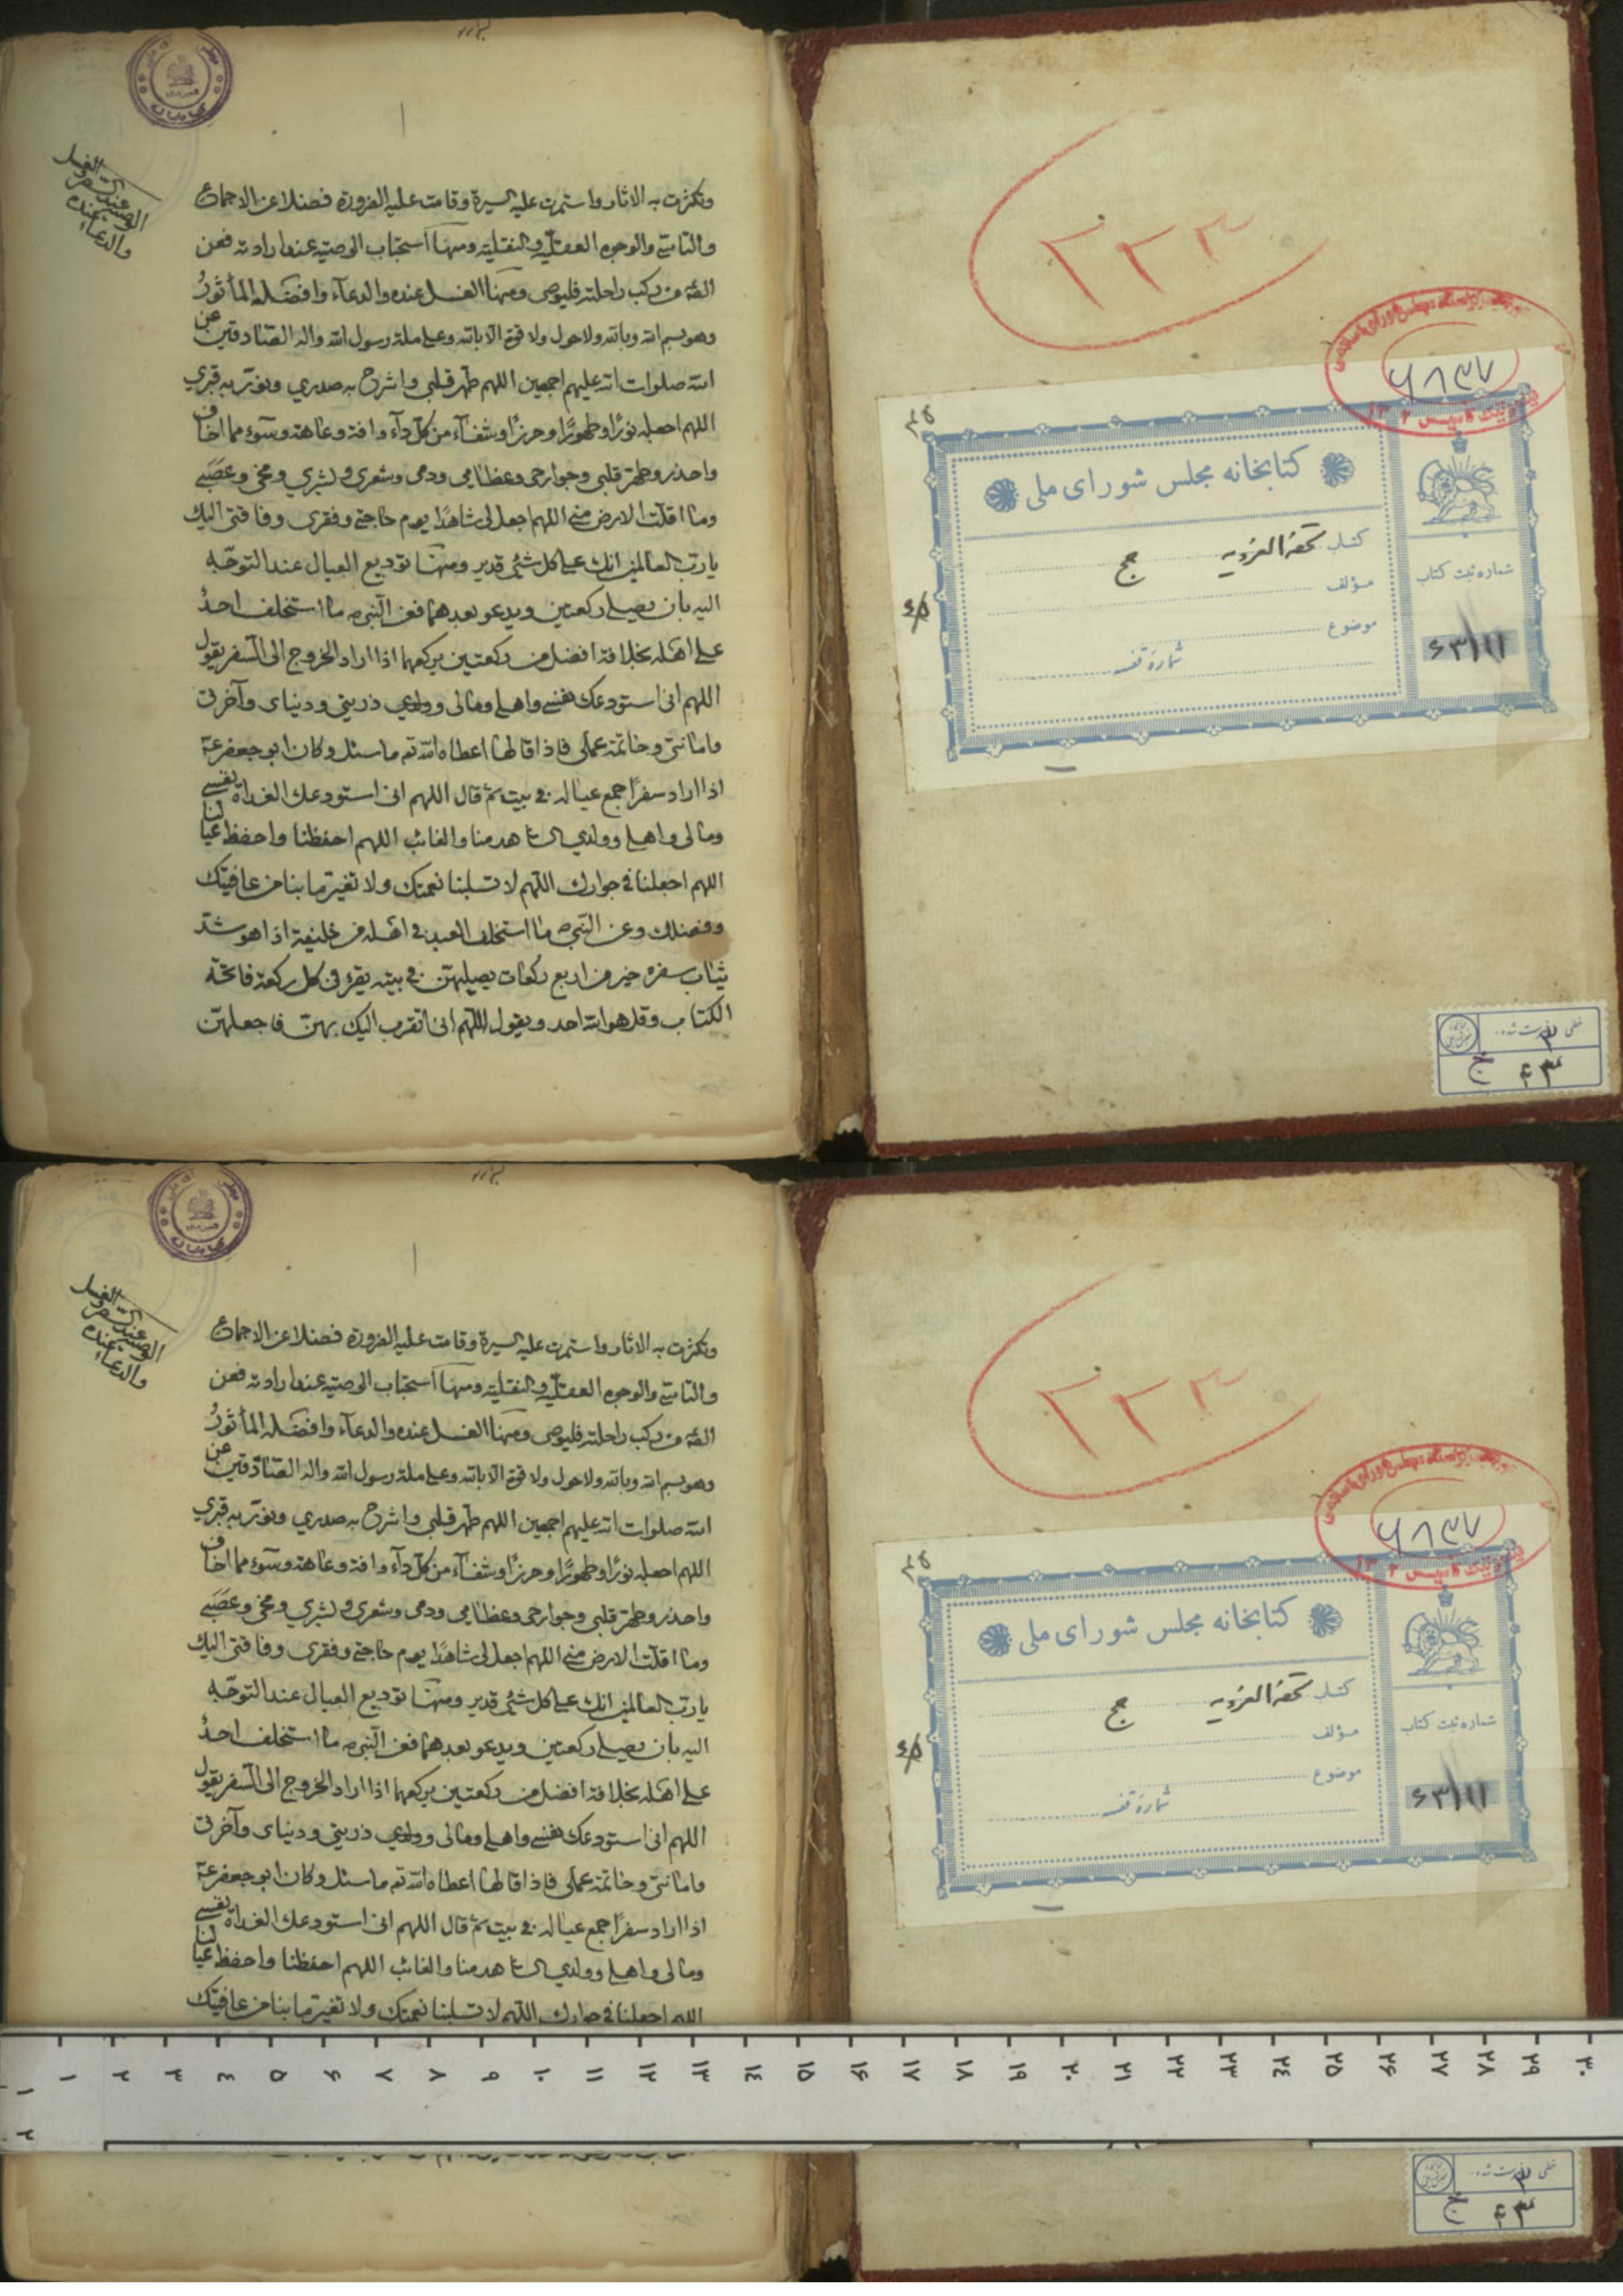 وتكثرت به الاثار واستمرت عليه السيرة وقامت عليه الضرورة فضلا عن الاجماع
والتاسى والوجوه العقليه والنقليه ومنها استحباب الوصيه عند ارادته فعن
الصّه من ركب راحلته فليوص ومنها الغسل عنده والدعآء وافضله المأثورُ
وهو بسم الله وبالله ولا حول ولا قوة الا بالله وعلى ملة رسول الله واله الصّادقين عن
الله صلوات الله عليهم اجمعين اللهم طهر قلبى واشرح به صدري ونوّر به قبري
اللهم اجعله نورًا وطهورًا وحرزًا وشفآءً من كل دآء وافة وعاهة وسوء مما اخاف
واحذر وطهر قلبى وجوارحى وعظامى ودمى وشعرى وبشري ومخى وعصبى
وما اقلت الارض منى اللهم اجعل لى شاهدًا يوم حاجتى وفقرى وفاقتى اليك
يا ربّ العالمين انك على كل شئ قدير ومنها توديع العيال عند التوجّه
اليه بان يصلى ركعتين ويدعو بعدهما فعن النّبى ص ما استخلف احدُ
على اهله بخلافة افضل من ركعتين يركعهما اذا اراد الخروج الى السّفر يقول
اللهم انى استودعك نفسى واهلى ومالى وولدي ذريتى ودنياى وآخرتى
وامانتى وخاتمة عملى فاذا قالها اعطاه الله ته ما سئل وكان ابو جعفر ع
اذا اراد سفرًا جمع عياله فى بيت ثم قال اللهم انى استودعك الغداة نفسى
ومالى واهلى وولدي الشاهد منا والغائب اللهم احفظنا واحفظ عيالنا
اللهم اجعلنا فى جوارك اللهم لا تسلبنا نعمتك ولا تغير ما بنا من عافيتك
وفضلك وعن النّبى ص ما استخلف العبد فى اهله من خليفة اذا هو شد
ثياب سفره خير من اربع ركعات يصليهن فى بيته يقرء فى كل ركعة فاتحة
الكتاب وقل هو الله احد ويقول اللهم انى اتقرب اليك بهنّ فاجعلهنّ
الوصية عند السفر والغسل
عنده
والدعاء
۲۲۳
۶۸۳۷
کتابخانه مجلس شورای ملی
کتاب تحفة الغرویه حج
مؤلف
موضوع
شماره قفسه
شماره ثبت کتاب
۶۳۱۱۱
خطی فهرست شده
وتكثرت به الاثار واستمرت عليه السيرة وقامت عليه الضرورة فضلا عن الاجماع
والتاسى والوجوه العقليه والنقليه ومنها استحباب الوصيه عند ارادته فعن
الصّه من ركب راحلته فليوص ومنها الغسل عنده والدعآء وافضله المأثورُ
وهو بسم الله وبالله ولا حول ولا قوة الا بالله وعلى ملة رسول الله واله الصّادقين عن
الله صلوات الله عليهم اجمعين اللهم طهر قلبى واشرح به صدري ونوّر به قبري
اللهم اجعله نورًا وطهورًا وحرزًا وشفآءً من كل دآء وافة وعاهة وسوء مما اخاف
واحذر وطهر قلبى وجوارحى وعظامى ودمى وشعرى وبشري ومخى وعصبى
وما اقلت الارض منى اللهم اجعل لى شاهدًا يوم حاجتى وفقرى وفاقتى اليك
يا ربّ العالمين انك على كل شئ قدير ومنها توديع العيال عند التوجّه
اليه بان يصلى ركعتين ويدعو بعدهما فعن النّبى ص ما استخلف احدُ
على اهله بخلافة افضل من ركعتين يركعهما اذا اراد الخروج الى السّفر يقول
اللهم انى استودعك نفسى واهلى ومالى وولدي ذريتى ودنياى وآخرتى
وامانتى وخاتمة عملى فاذا قالها اعطاه الله ته ما سئل وكان ابو جعفر ع
اذا اراد سفرًا جمع عياله فى بيت ثم قال اللهم انى استودعك الغداة نفسى
ومالى واهلى وولدي الشاهد منا والغائب اللهم احفظنا واحفظ عيالنا
اللهم اجعلنا فى جوارك اللهم لا تسلبنا نعمتك ولا تغير ما بنا من عافيتك
الوصية عند السفر والغسل
عنده
والدعاء
۲۲۳
۶۸۳۷
کتابخانه مجلس شورای ملی
کتاب تحفة الغرویه حج
مؤلف
موضوع
شماره قفسه
شماره ثبت کتاب
۶۳۱۱۱
۱ ۲ ۳ ۴ ۵ ۶ ۷ ۸ ۹ ۱۰ ۱۱ ۱۲ ۱۳ ۱۴ ۱۵ ۱۶ ۱۷ ۱۸ ۱۹ ۲۰ ۲۱ ۲۲ ۲۳ ۲۴ ۲۵ ۲۶ ۲۷ ۲۸ ۲۹ ۳۰
۱
۲
خطی فهرست شده